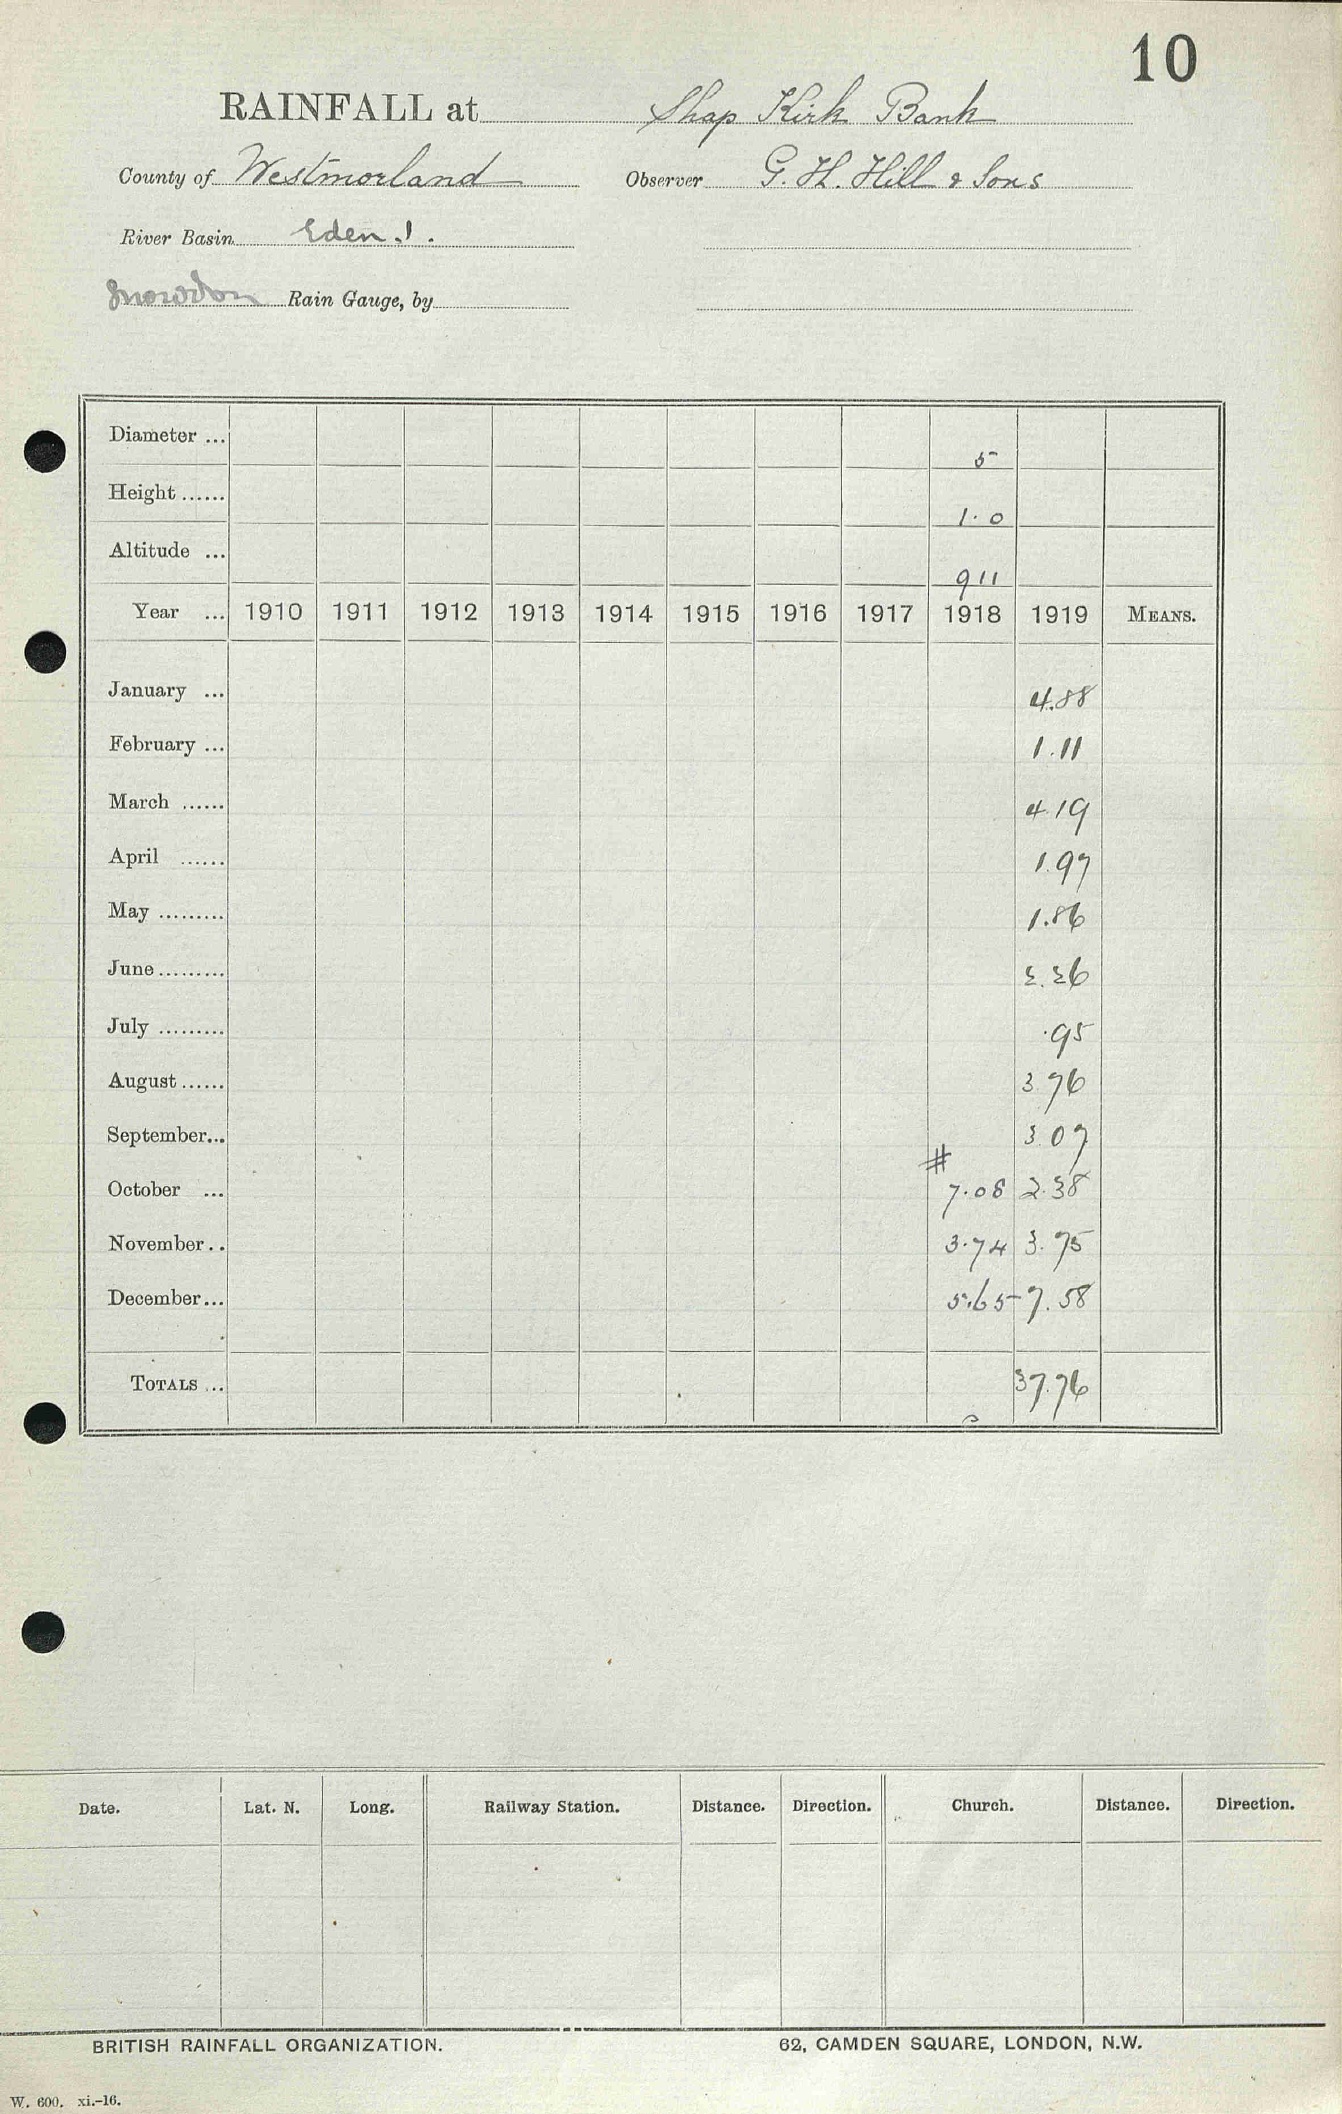 10
RAINFALL at Shap Kirk Bank
County of Westmorland Observer G. H. Hill & Sons
River Basin Eden .1.
Snowdon Rain Gauge, by
Diameter ... 5
Height ...... 1.0
Altitude ... 911
Year ... 1910 1911 1912 1913 1914 1915 1916 1917 1918 1919 MEANS.
January ... 4.88
February ... 1.11
March ...... 4.19
April ...... 1.97
May ......... 1.86
June ......... 2.26
July ......... .95
August ...... 3.76
September... 3.07
#
October ... 7.08 2.38
November .. 3.74 3.75
December ... 5.65 7.58
TOTALS ... 37.76
Date. Lat. N. Long. Railway Station. Distance. Direction. Church. Distance. Direction.
BRITISH RAINFALL ORGANIZATION. 62, CAMDEN SQUARE, LONDON, N.W.
W. 600. xi.-16.